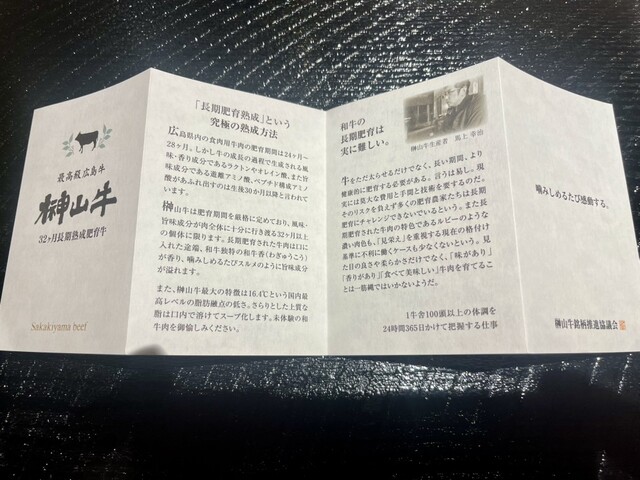 最高級広島牛
榊山牛
32ヶ月長期熟成肥育牛
Sakakiyama beef
「長期肥育熟成」という
究極の熟成方法
広島県内の食肉用牛肉の肥育期間は24ヶ月〜
28ヶ月。しかし牛の成長の過程で生成される風
味・香り成分であるラクトンやオレイン酸、また旨
味成分である遊離アミノ酸、ペプチド構成アミノ
酸があふれ出すのは生後30か月以降と言われて
います。
榊山牛は肥育期間を厳格に定めており、風味・
旨味成分が肉全体に十分に行き渡る32ヶ月以上
の個体に限ります。長期肥育された牛肉は口に
入れた途端、和牛独特の和牛香(わぎゅうこう)
が香り、噛みしめるたびスルメのように旨味成分
が溢れます。
また、榊山牛最大の特徴は16.4℃という国内最
高レベルの脂肪融点の低さ。さらりとした上質な
脂は口内で溶けてスープ化します。未体験の和
牛肉を御愉しみください。
和牛の
長期肥育は
実に難しい。
榊山牛生産者 馬上 幸治
牛をただ太らせるだけでなく、長い期間、より
健康的に肥育する必要がある。言うは易し。現
実には莫大な費用と手間と技術を要するのだ。
そのリスクを負えず多くの肥育農家たちは長期
肥育にチャレンジできないでいるという。また長
期肥育された牛肉の特色であるルビーのような
濃い肉色も、「見栄え」を重視する現在の格付け
基準に不利に働くケースも少なくないという。見
た目の良さや柔らかさだけでなく、「味があり」
「香りがあり」「食べて美味しい」牛肉を育てるこ
とは一筋縄ではいかないようだ。
1牛舎100頭以上の体調を
24時間365日かけて把握する仕事
噛みしめるたび感動する。
榊山牛銘柄推進協議会